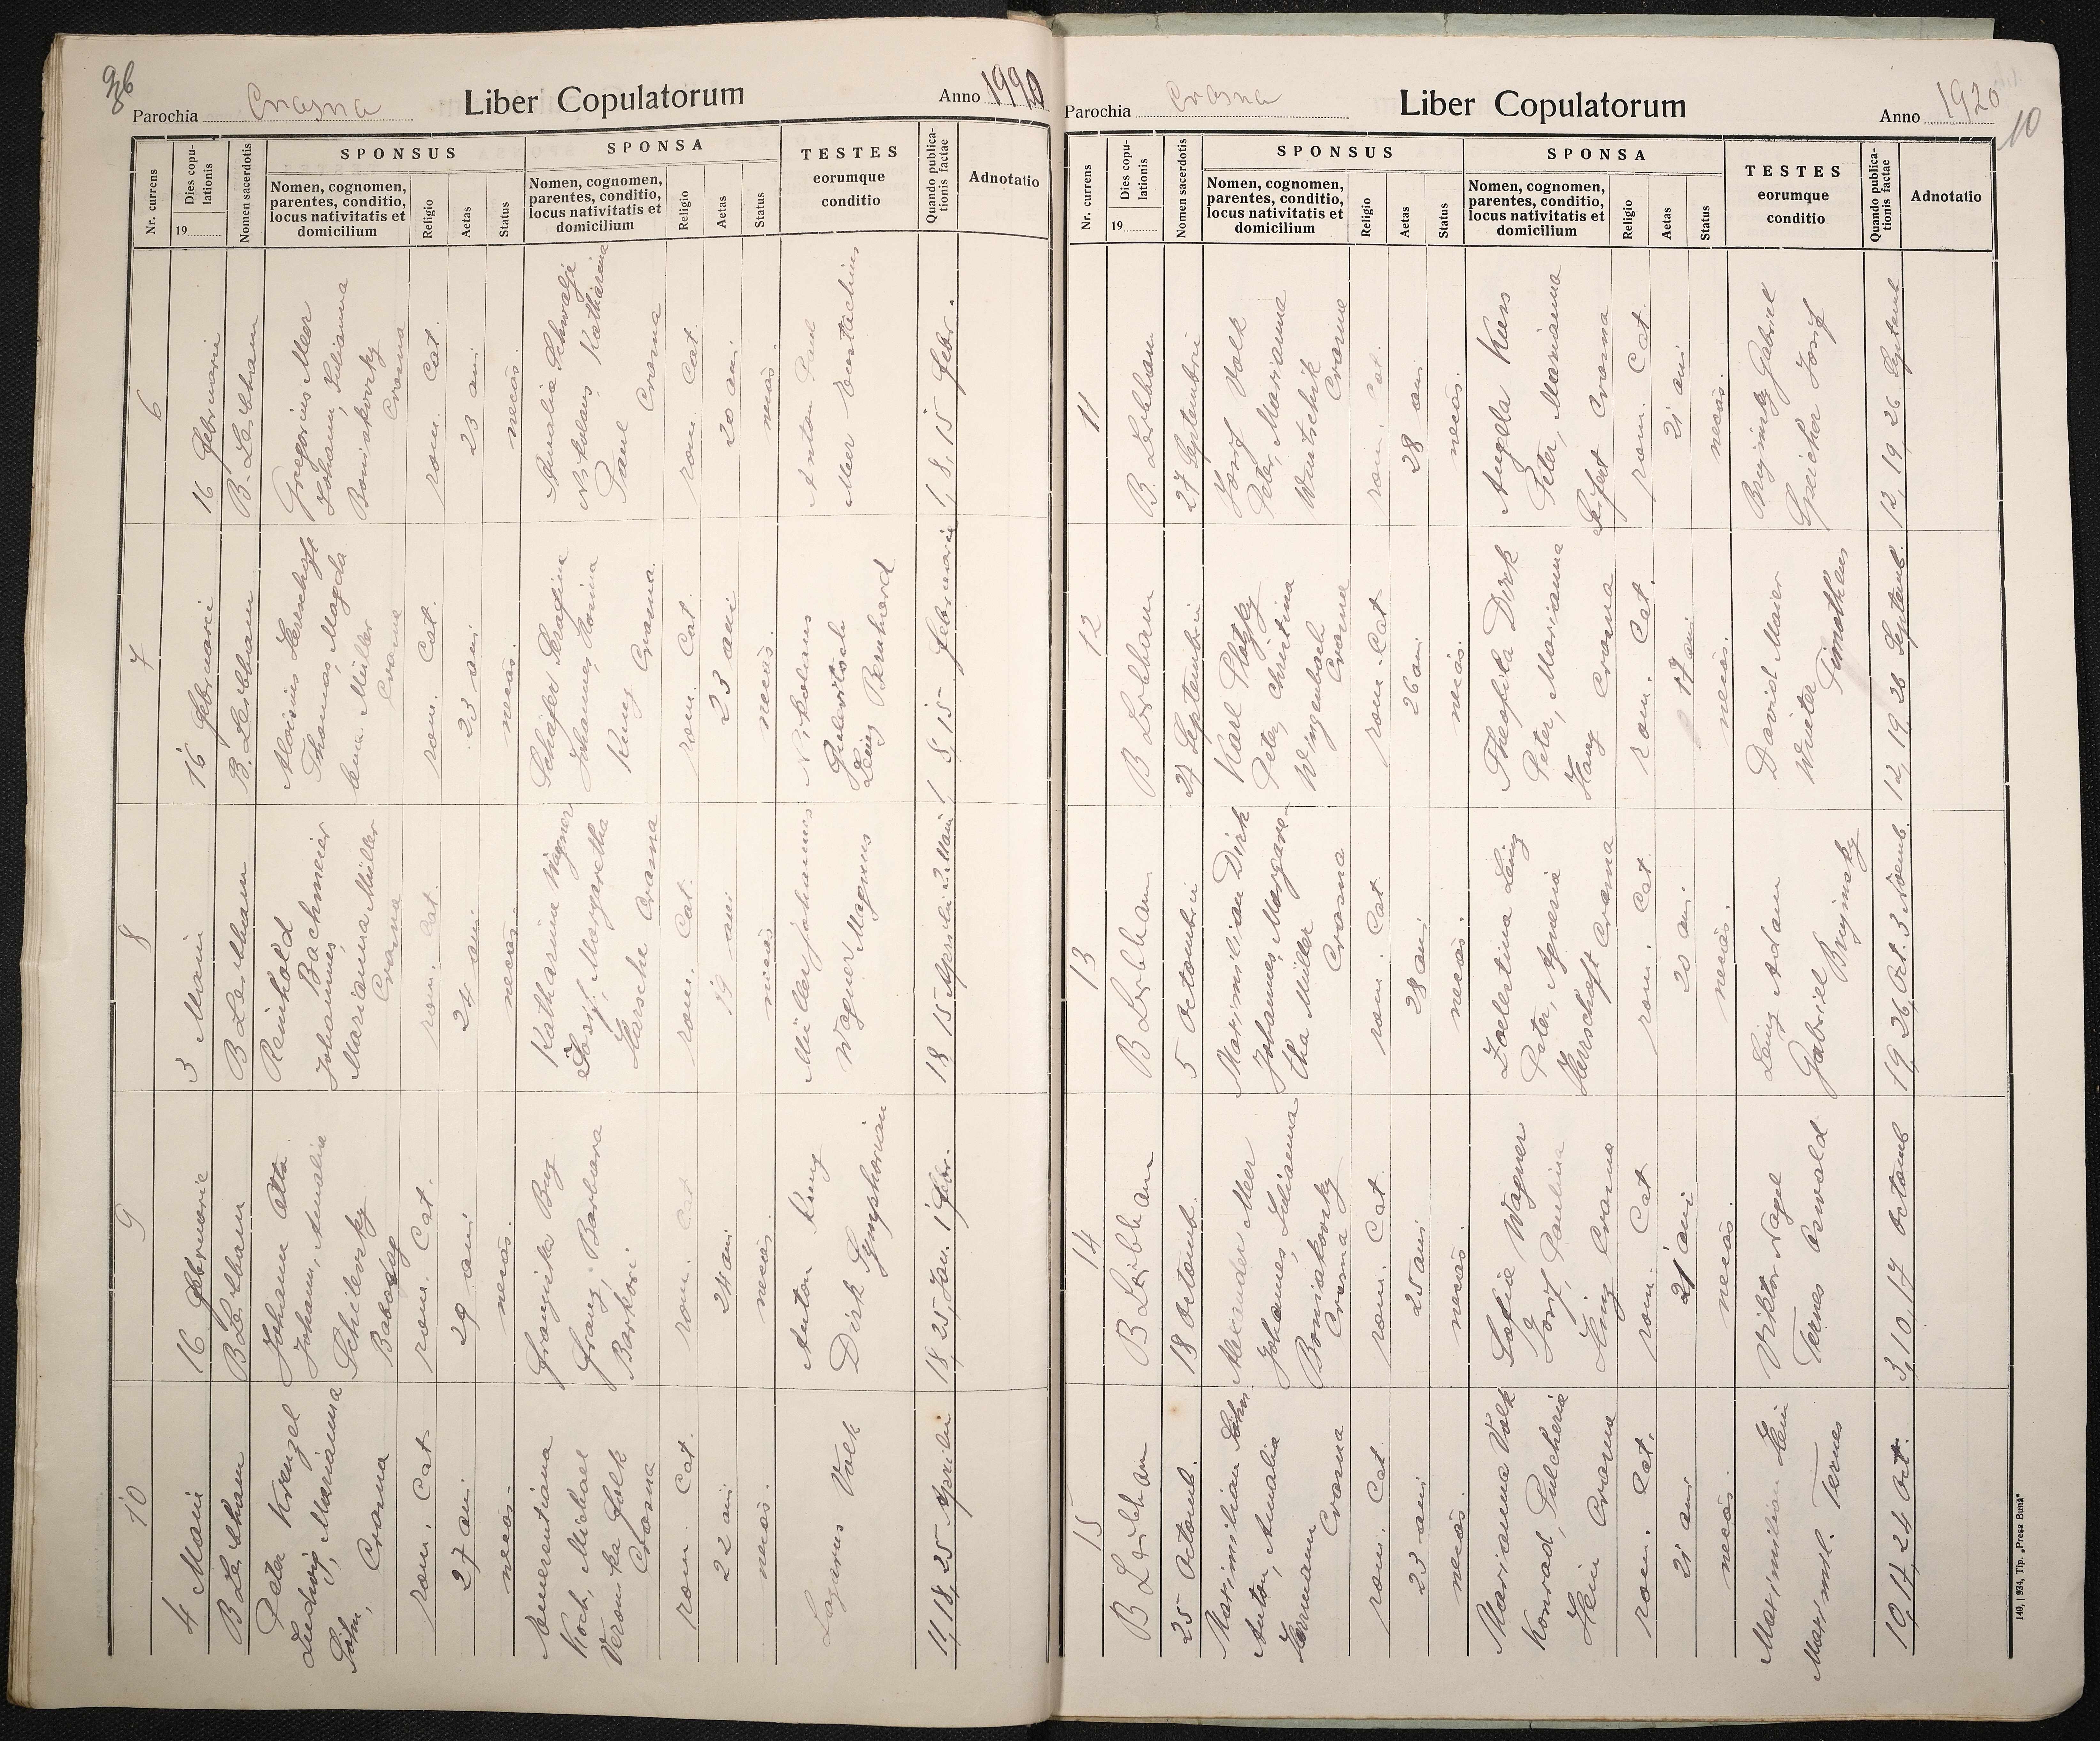 96
Parochia Crasna
Liber Copulatorum
Anno 1920
Nr. currens
Dies copu-
lationis
19
Nomen sacerdotis
SPONSUS
Nomen, cognomen,
parentes, conditio,
locus nativitatis et
domicilium
Religio
Aetas
Status
SPONSA
Nomen, cognomen,
parentes, conditio,
locus nativitatis et
domicilium
Religio
Aetas
Status
TESTES
eorumque
conditio
Quando publica-
tionis factae
Adnotatio
6
16 Februarie
B. Leibham
Gregorius Meer
Johann, Juliana
Boniakovsky
Crasna
rom. Cat.
23 ani
necăs.
Amalia Schwalje
Nikolaus Katharina
Paul Crasna
rom. Cat.
20 ani.
necăs.
Anton Paul
Meer Eustachius
1, 8, 15 Febr.
7
16 Februarie
B. Leibham
Aloisius Herrschaft
Thomas, Magda
lena Müller
Crasna
rom. Cat.
23 ani
necăs.
Schäfer
Johannes,
Kunz Crasna
rom. Cat.
23 ani
necăs.
Nikolaus
Leinz Bernhard
1, 8, 15 Februarie
8
3 Maiu
B Leibham
Reinhold
Bachmeier
Johannes,
Marianna Müller
Crasna
rom. Cat.
24 ani
necăs.
Katharina Wagner
Iosif, Margaretha
Harsche Crasna
rom. Cat.
19 ani
necăs
Müller Johannes
Wagner Magnus
18, 15 Aprilie 2 Maiu
9
16 Februarie
B Leibham
Johann
Johann, Amalia
Schilevsky
rom. Cat.
29 ani
necăs.
Franziska
Franz, Barbara
rom. Cat.
24 ani
necăs.
Anton Kunz
Dirk Symphorian
18, 25, Jan. 1 Febr.
10
4 Maiu
B Leibham
Peter Krenzel
Ludwig, Marianna
Söhn, Crasna
rom. Cat
27 ani
necăs.
Emerentiana
Koch, Michael
Veronika Folk
Crasna
rom. Cat.
22 ani
necăs.
Lazarus Volk
11, 18, 25 Aprilie
Parochia Crasna
Liber Copulatorum
Anno 1920
10
Nr. currens
Dies copu-
lationis
19
Nomen sacerdotis
SPONSUS
Nomen, cognomen,
parentes, conditio,
locus nativitatis et
domicilium
Religio
Aetas
Status
SPONSA
Nomen, cognomen,
parentes, conditio,
locus nativitatis et
domicilium
Religio
Aetas
Status
TESTES
eorumque
conditio
Quando publica-
tionis factae
Adnotatio
11
B. Leibham
27 Septembrie
Iosif Volk
Peter, Marianna
Crasna
rom. Cat.
28 ani
necăs.
Angela Kuss
Peter, Marianna
Seifert Crasna
rom. Cat.
21 ani
necăs.
Gabriel
Speicher Josif
12, 19, 26 Septemb
12
B Leibham
27 Septembrie
Karl Plotzky
Peter, Christina
Wingenbach
Crasna
rom. Cat
26 ani
necăs.
Theofila Dirk
Peter, Marianna
Crasna
rom. Cat.
17 ani
necăs.
David Maier
Winter
Timotheus
12, 19, 26 Septemb.
13
B Leibham
5 Octombrie
Maximilian Dirk
Johannes, Margare-
tha Müller
Crasna
rom. Cat
28 ani
necăs.
Zoelestina Leinz
Peter, Agnesia
Herrschaft Crasna
rom. Cat
20 ani.
necăs.
Leinz Adam
Gabriel
19, 26, Oct. 3 Noemb.
14
B Leibham
18 Octomb.
Alexander Meer
Johannes, Juliana
Boniakovsky
Crasna
rom. Cat.
25 ani
necăs.
Sofia Wagner
Iosif, Paulina
Crasna
rom. Cat
21 ani
necăs.
Viktor Nagel
Ternes Oswald
3, 10, 17 Octomb
15
B Leibham
25 Octomb.
Maximilian Söhn
Anton, Amalia
Hermann
Crasna
rom. Cat
23 ani
necăs.
Marianna Volk
Konrad, Pulcheria
Hein Crasna
rom. Cat.
21 ani
necăs.
Maximilian Hein
Maximil. Ternes
10, 17, 24 Oct.
140, | 934, Tip. „Presa Bună”